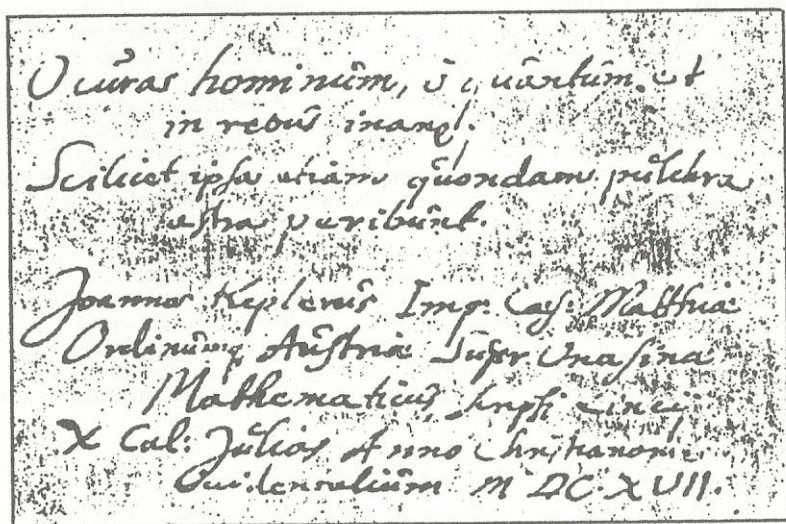 O curas hominum, ô quantum et
in rebus inane!
Scilicet ipsa etiam quondam pulchra
astra peribunt.
Joannes Keplerus Imp: Caes: Matthiae
Ordinumq Austriae Supr Onasinae
Mathematicus, scripsi
X Cal: Julias Anno Christianorum
Occidentalium M DC XVII.